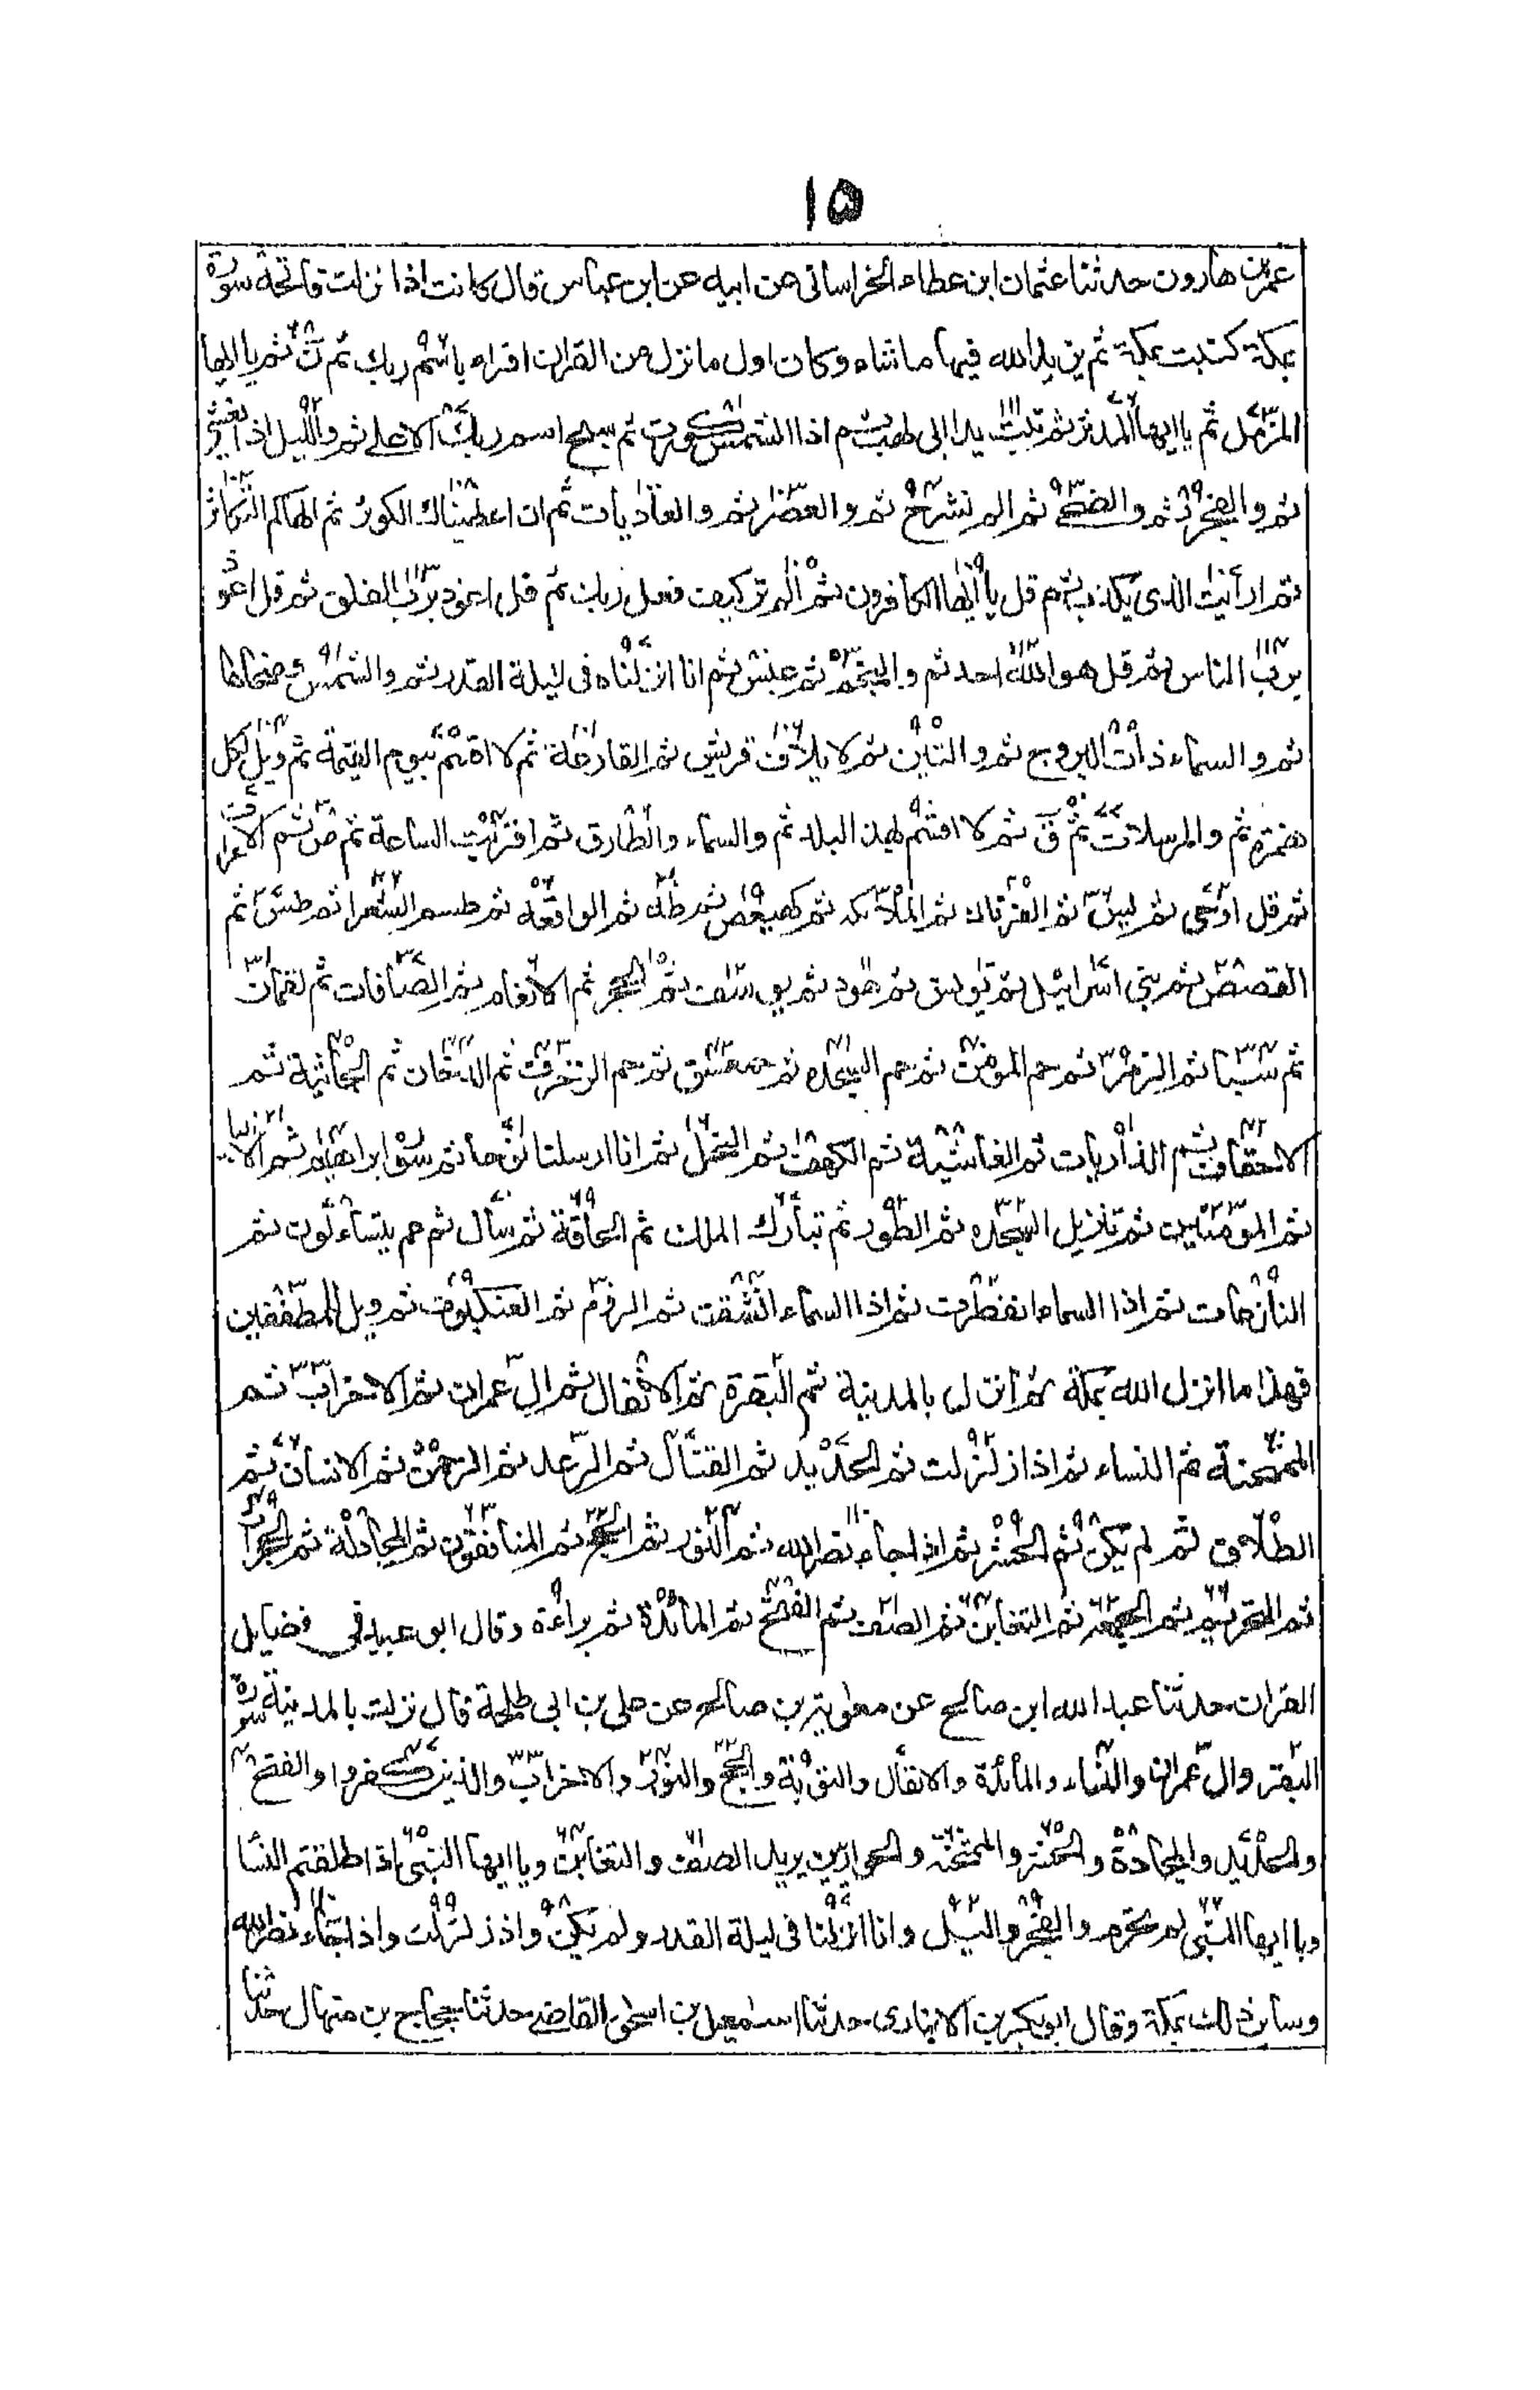 ١٥
عمر بن هارون حدثنا عثمان ابن عطاء الخراسانى عن ابيه عن ابن عباس قال كانت اذا نزلت فاتحة سورة
بمكة كتبت بمكة ثم يزيد الله فيها ما شاء وكان اول ما نزل من القران اقراء باسم ربك ثم ن ثم يا ايها
المزمل ثم يا ايها المدثر ثم تبت يدا ابى لهب ثم اذا الشمس كورت ثم سبح اسم ربك الاعلى ثم والليل اذا يغشى
ثم والفجر ثم والضحى ثم الم نشرح ثم والعصر ثم والعاديات ثم ان اعطيناك الكوثر ثم الهاكم التكاثر
ثم ارأيت الذى يكذب ثم قل يا ايها الكافرون ثم الم تر كيف فعل ربك ثم قل اعوذ برب الفلق ثم قل اعوذ
برب الناس ثم قل هو الله احد ثم والنجم ثم عبس ثم انا انزلناه فى ليلة القدر ثم والشمس وضحاها
ثم والسماء ذات البروج ثم والتين ثم لايلاف قريش ثم القارعة ثم لا اقسم بيوم القيمة ثم ويل لكل
همزة ثم والمرسلات ثم ق ثم لا اقسم بهذا البلد ثم والسماء والطارق ثم اقتربت الساعة ثم ص ثم الاعراف
ثم قل اوحى ثم يس ثم الفرقان ثم الملائكه ثم كهيعص ثم طه ثم الواقعه ثم طسم الشعرا ثم طس ثم
القصص ثم بنى اسرائيل ثم يونس ثم هود ثم يوسف ثم الحجر ثم الانعام ثم الصافات ثم لقمان
ثم سبا ثم الزمر ثم حم المومن ثم حم السجده ثم حمعسق ثم حم الزخرف ثم الدخان ثم الجاثية ثم
الاحقاف ثم الذاريات ثم الغاشية ثم الكهف ثم النحل ثم انا ارسلنا نوحا ثم سورة ابراهيم ثم الانبيا
ثم المومنين ثم تنزيل السجده ثم الطور ثم تبارك الملك ثم الحاقة ثم سأل ثم عم يتساءلون ثم
النازعات ثم اذا السماء انفطرت ثم اذا السماء انشقت ثم الروم ثم العنكبوت ثم ويل للمطففين
فهذا ما انزل الله بمكة ثم انزل بالمدينة ثم البقرة ثم الانفال ثم ال عمران ثم الاحزاب ثم
الممتحنة ثم النساء ثم اذا زلزلت ثم الحديد ثم القتال ثم الرعد ثم الرحمن ثم الانسان ثم
الطلاق ثم لم يكن ثم الحشر ثم اذا جاء نصر الله ثم النور ثم الحج ثم المنافقون ثم المجادلة ثم الحجرات
ثم التحريم ثم الجمعه ثم التغابن ثم الصف ثم الفتح ثم المائدة ثم براءة وقال ابو عبيد فى فضايل
القران حدثنا عبد الله ابن صالح عن معاوية بن صالح عن على بن ابى طلحة قال نزلت بالمدينة سورة
البقر وال عمران والنساء والمائدة والانفال والتوبة والحج والنور والاحزاب والذين كفروا والفتح
والحديد والمجادة والحشر والممتحنة والحواريين يريد الصف والتغابن ويا ايها النبى اذا طلقتم النسا
ويا ايها النبى لم تحرم والفجر والليل وانا انزلنا فى ليلة القدر ولم يكن واذ زلزلت واذا جاء نصر الله
وسائر ذلك بمكة وقال ابو بكر بن الانبارى حدثنا اسمعيل بن اسحق القاضى حدثنا حجاج بن منهال حدثنا